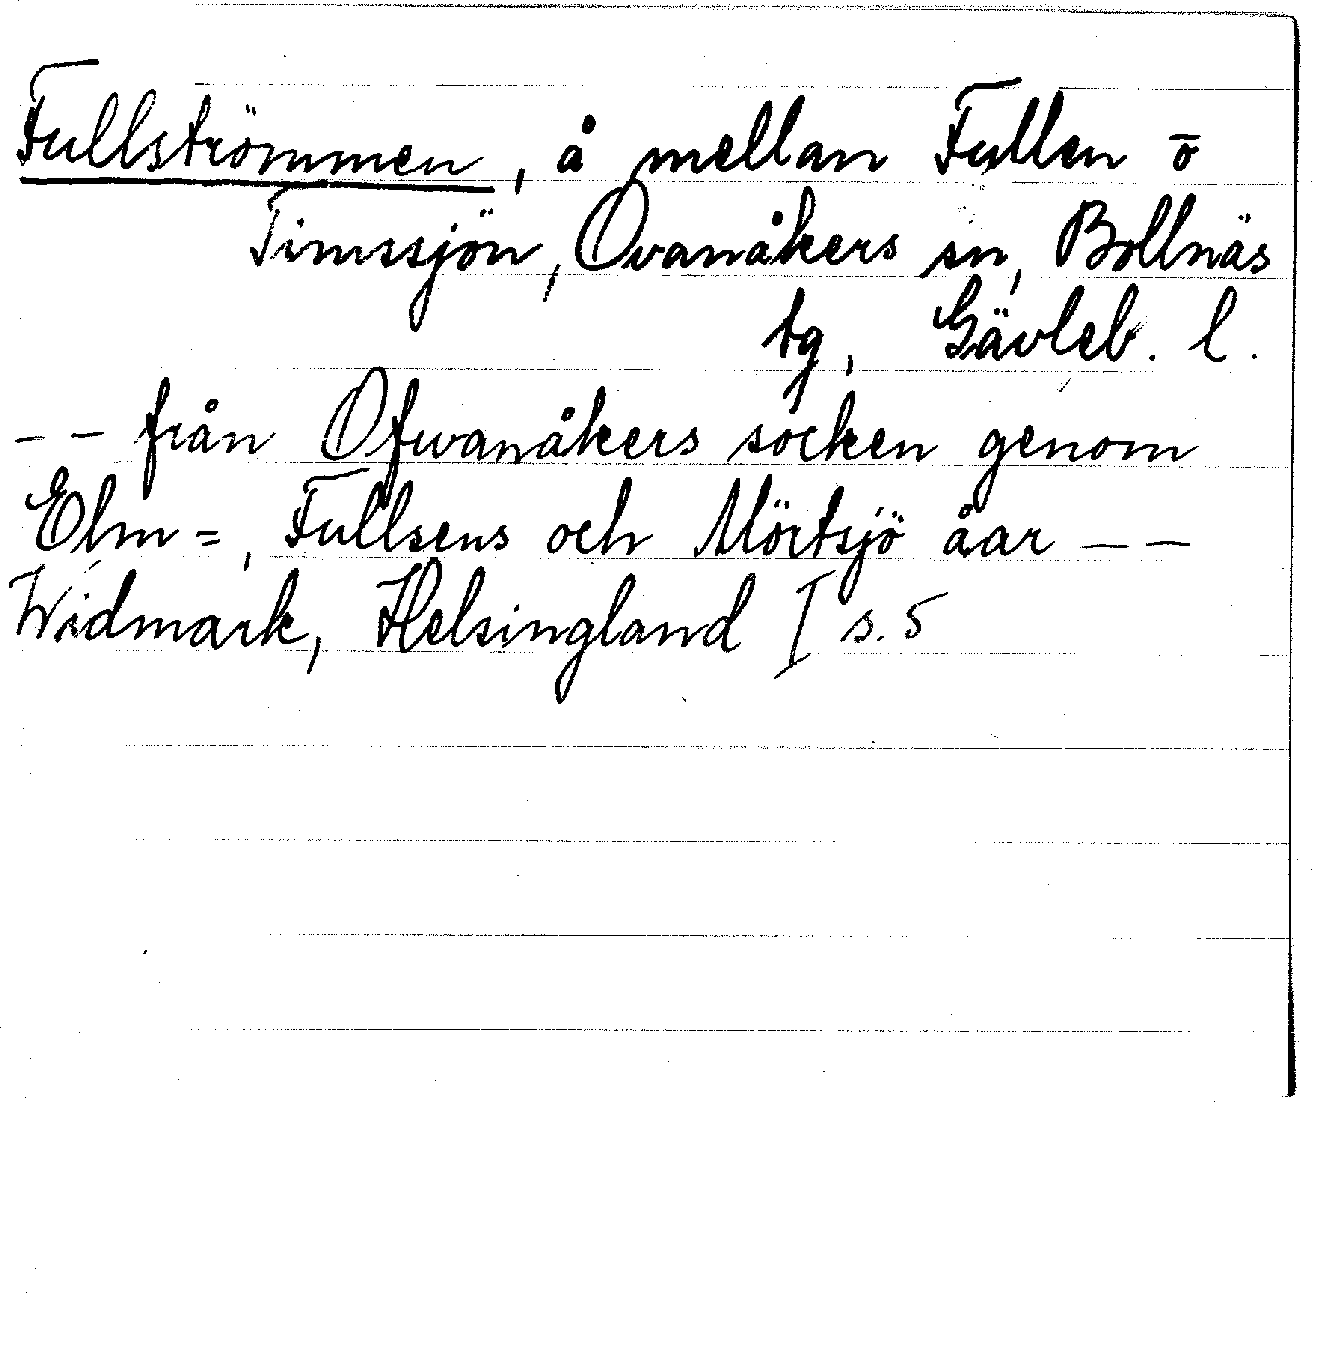 Fullströmmen, å mellan Fullen ō
Timssjön, Ovanåkers sn, Bollnäs
tg, Gävleb. l.
-- från Ofwanåkers socken genom
Elm=, Fullsens och Mörtsjö åar --
Widmark, Helsingland I s. 5